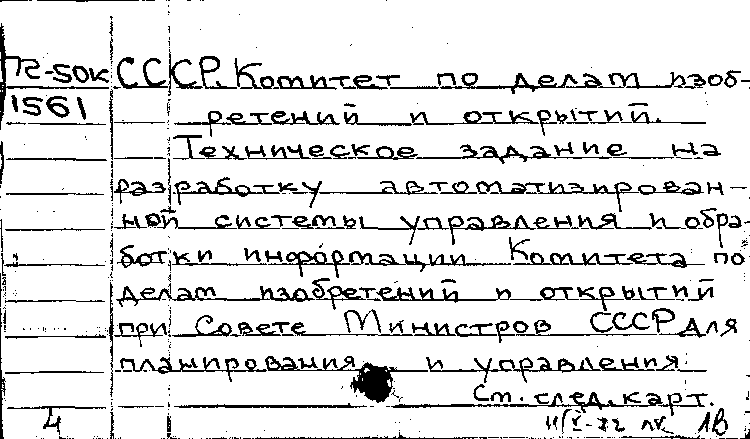 72-50к СССР. Комитет по делам изоб-
1561 ретений и открытий.
Техническое задание на
разработку автоматизирован-
ной системы управления и обра-
ботки информации Комитета по
делам изобретений и открытий
при Совете Министров СССР для
планирования и управления
См. след. карт.
4 ЛВ